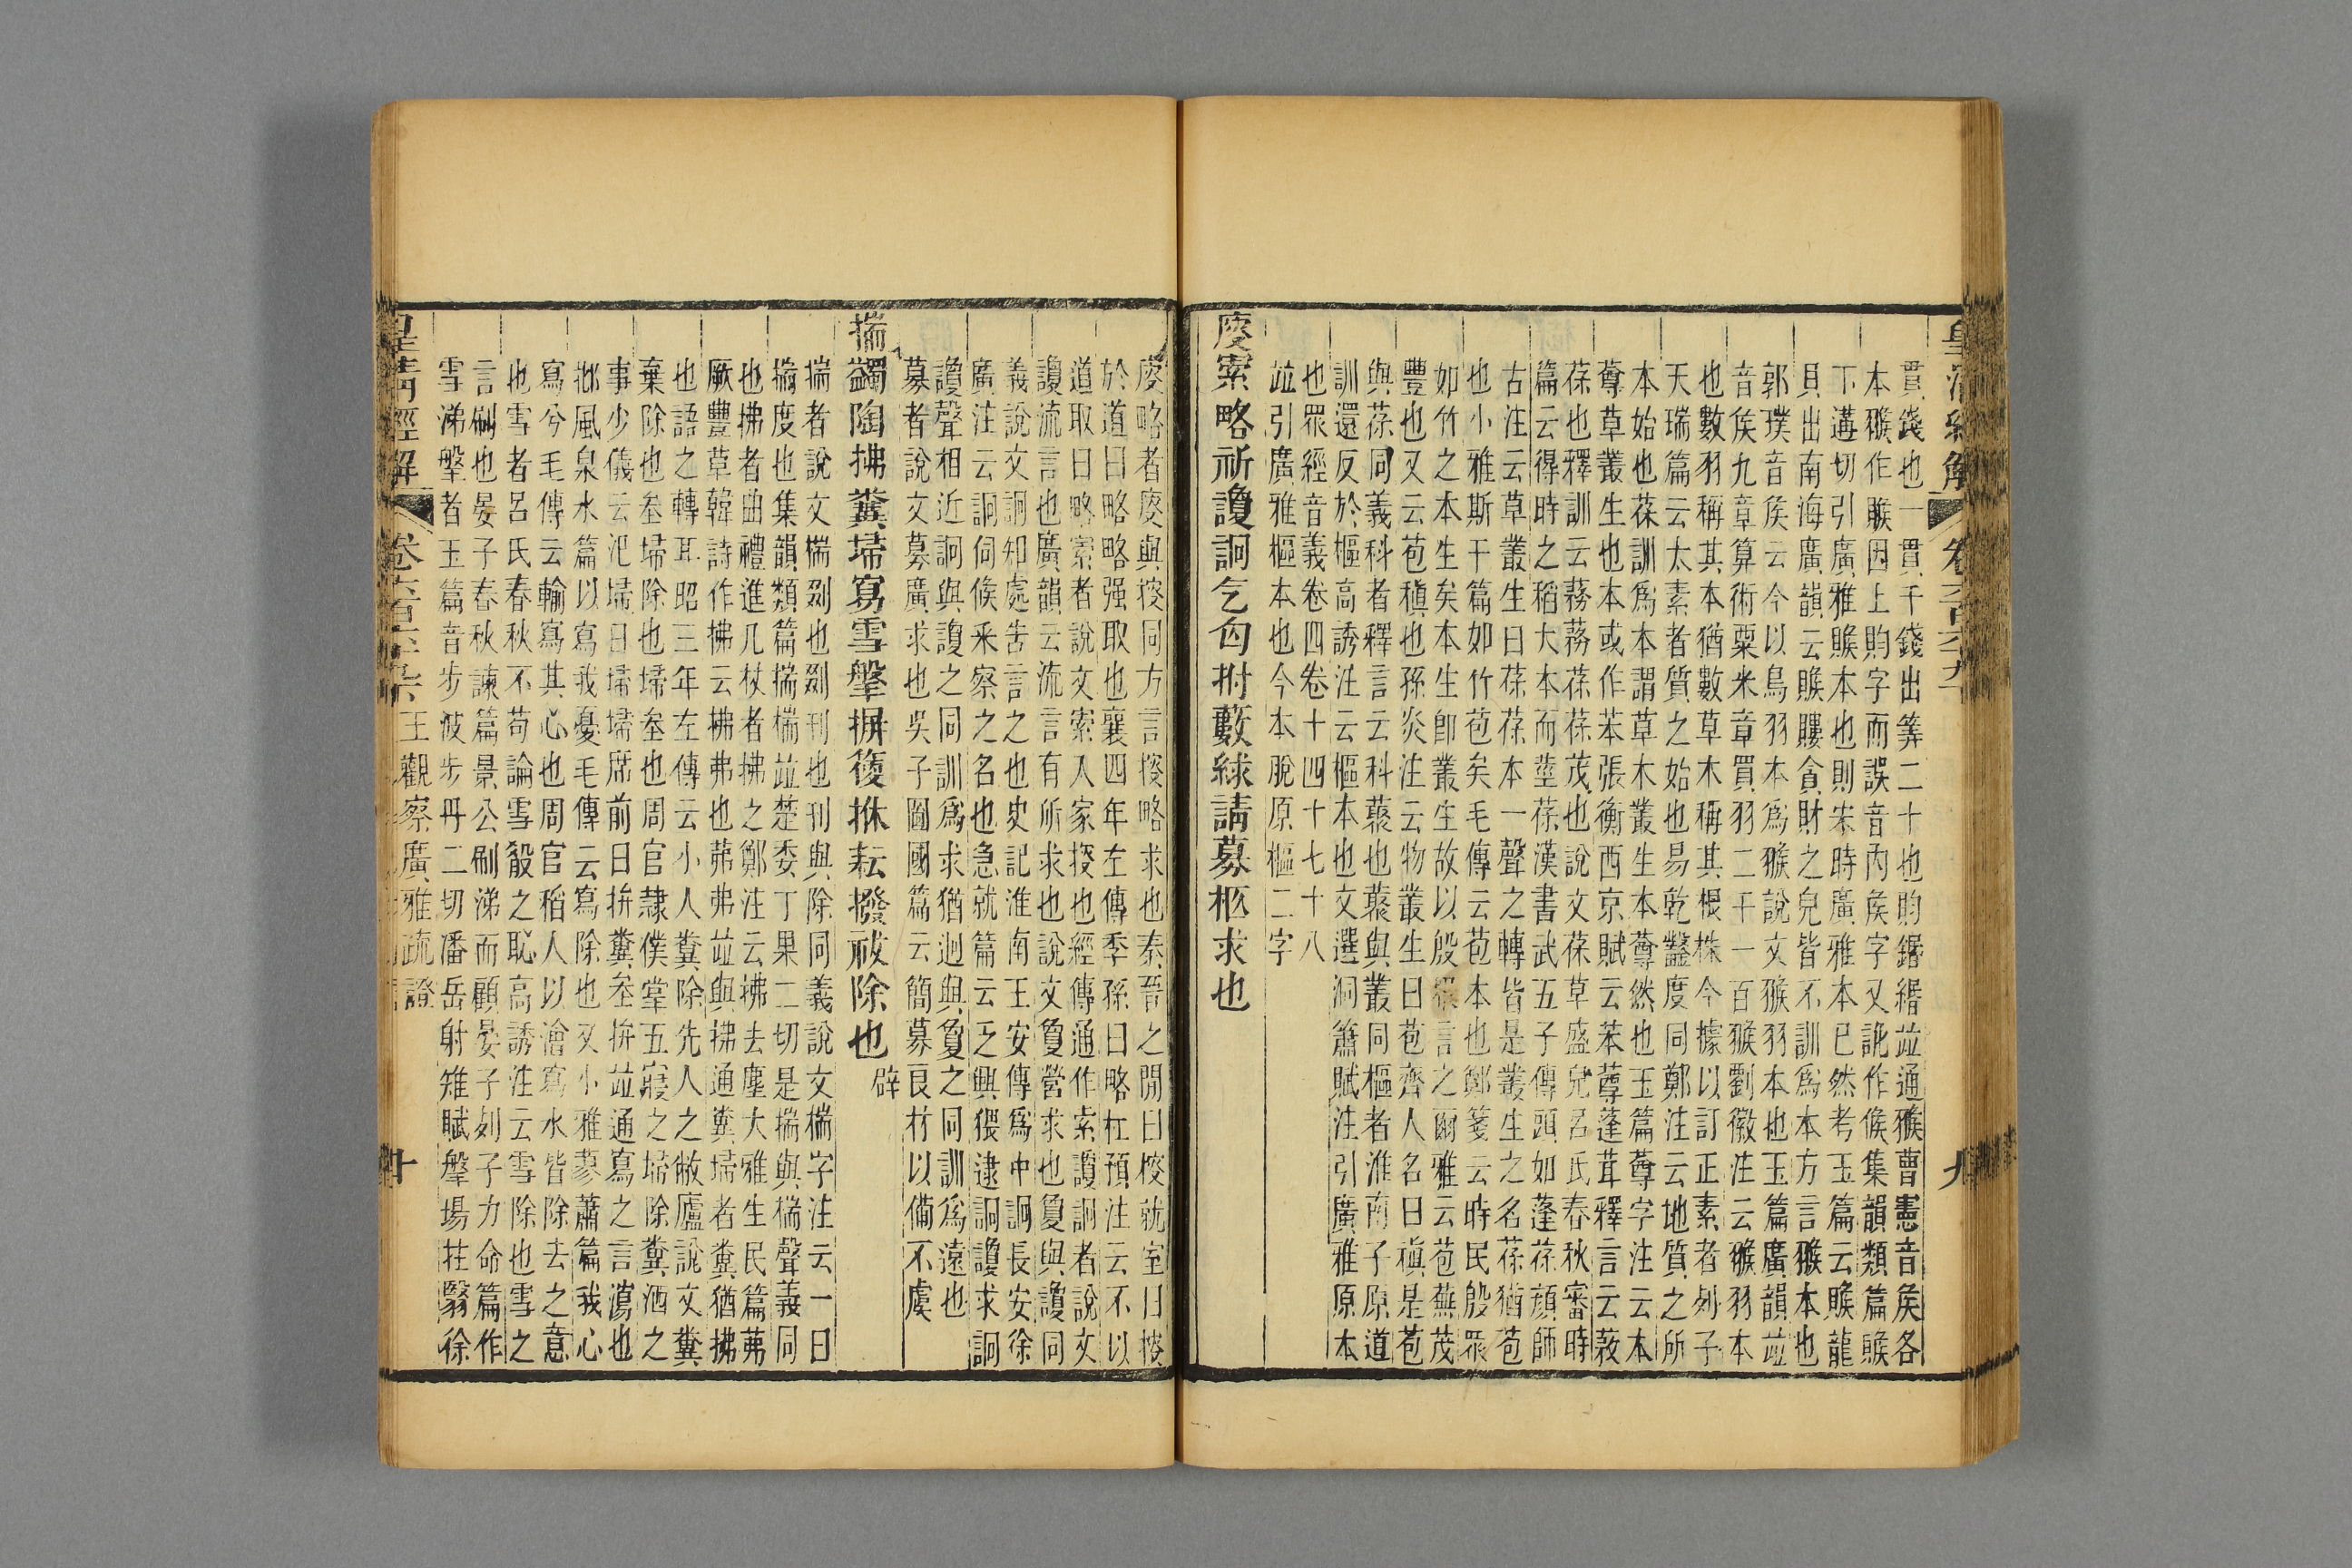 皇清經解 卷六百六十九 九
貫錢也一貫千錢出筭二十也䝧鏂緡竝通㺅曹憲音矦各
本㺅作䞀因上䝧字而誤音內矦字又訛作候集韻類篇䞀
下遘切引廣雅䞀本也則宋時廣雅本已然考玉篇云䞀龍
貝出南海廣韻云䞀䝏貪財之皃皆不訓爲本方言㺅本也
郭璞音矦云今以鳥羽本爲㺅說文㺅羽本也玉篇廣韻竝
音矦九章算術粟米章買羽二千一百㺅劉徽注云㺅羽本
也數羽稱其本猶數草木稱其根株今據以訂正素者列子
天瑞篇云太素者質之始也易乾鑿度同鄭注云地質之所
本始也葆訓爲本謂草木叢生本蓴然也玉篇蓴字注云本
蓴草叢生也本或作苯張衡西京賦云苯蓴蓬茸釋言云蔱
葆也釋訓云蓩蓩葆葆茂也說文葆草盛皃呂氏春秋審時
篇云得時之稻大本而莖葆漢書武五子傳頭如蓬葆顏師
古注云草叢生曰葆葆本一聲之轉皆是叢生之名葆猶苞
也小雅斯干篇如竹苞矣毛傳云苞本也鄭箋云時民殷眾
如竹之本生矣本生卽叢生故以殷眾言之爾雅云苞蕪茂
豐也又云苞稹也孫炎注云物叢生曰苞齊人名曰稹是苞
與葆同義科者釋言云科藂也藂與叢同樞者淮南子原道
訓還反於樞高誘注云樞本也文選洞簫賦注引廣雅原本
也眾經音義卷四卷十四十七十八
竝引廣雅樞本也今本脫原樞二字
廋索略祈謾詗乞匃拊藪綠請募柩求也
廋略者廋與搜同方言搜略求也秦晉之閒曰搜就室曰搜
於道曰略略强取也襄四年左傳季孫曰略杜預注云不以
道取曰略索者說文索入家搜也經傳通作索謾詗者說文
謾流言也廣韻云流言有所求也說文敻營求也敻與謾同
義說文詗知處吿言之也史記淮南王安傳爲中詗長安徐
廣注云詗伺候釆察之名也急就篇云乏興猥逮詗謾求詗
謾聲相近詗與謾之同訓爲求猶迥與敻之同訓爲遠也
募者說文募廣求也吳子圖國篇云簡募良材以備不虞
揣蠲陶拂糞埽寫雪㨶摒𢕬拼耘撥祓除也 辟
揣者說文椯剟也剟刊也刊與除同義說文椯字注云一曰
揣度也集韻類篇揣椯竝楚委丁果二切是揣與椯聲義同
也拂者曲禮進几杖者拂之鄭注云拂去塵大雅生民篇茀
厥豐草韓詩作拂云拂弗也茀弗竝與拂通糞埽者糞猶拂
也語之轉耳昭三年左傳云小人糞除先人之敝廬說文糞
棄除也𡊅埽除也埽𡊅也周官隸僕掌五寢之埽除糞洒之
事少儀云汜埽曰埽埽席前曰拚糞𡊅拚竝通寫之言瀉也
邶風泉水篇以寫我憂毛傳云寫除也又小雅蓼蕭篇我心
寫兮毛傳云輸寫其心也周官稻人以澮寫水皆除去之意
也雪者呂氏春秋不苟論雪殽之恥高誘注云雪除也雪之
言刷也晏子春秋諫篇景公刷涕而顧晏子列子力命篇作
雪涕㨶者玉篇音步波步丹二切潘岳射雉賦㨶場拄翳徐
皇清經解 卷六百六十九 王觀察廣雅疏證 十